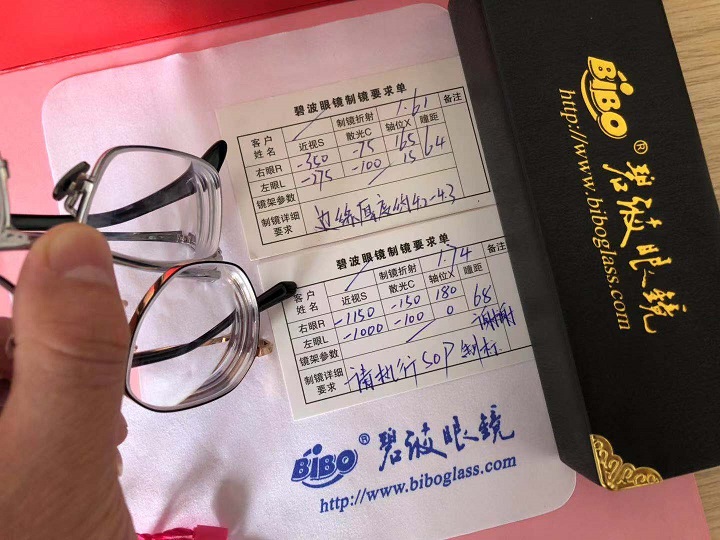 碧波眼镜制镜要求单
客户姓名 制镜折射 1.61 备注
近视S 散光C 轴位X 瞳距
右眼R -350 -75 165 64
左眼L -275 -100 15
镜架参数
制镜详细要求 边缘厚度约4.2-4.3
碧波眼镜制镜要求单
客户姓名 制镜折射 1.74 备注
近视S 散光C 轴位X 瞳距
右眼R -1150 -150 180 68
左眼L -1000 -100 0 谢谢
镜架参数
制镜详细要求 请机行SOP
BiBO® 碧波眼镜
http://www.biboglass.com
BiBO® 碧波眼镜
http://www.biboglass.com